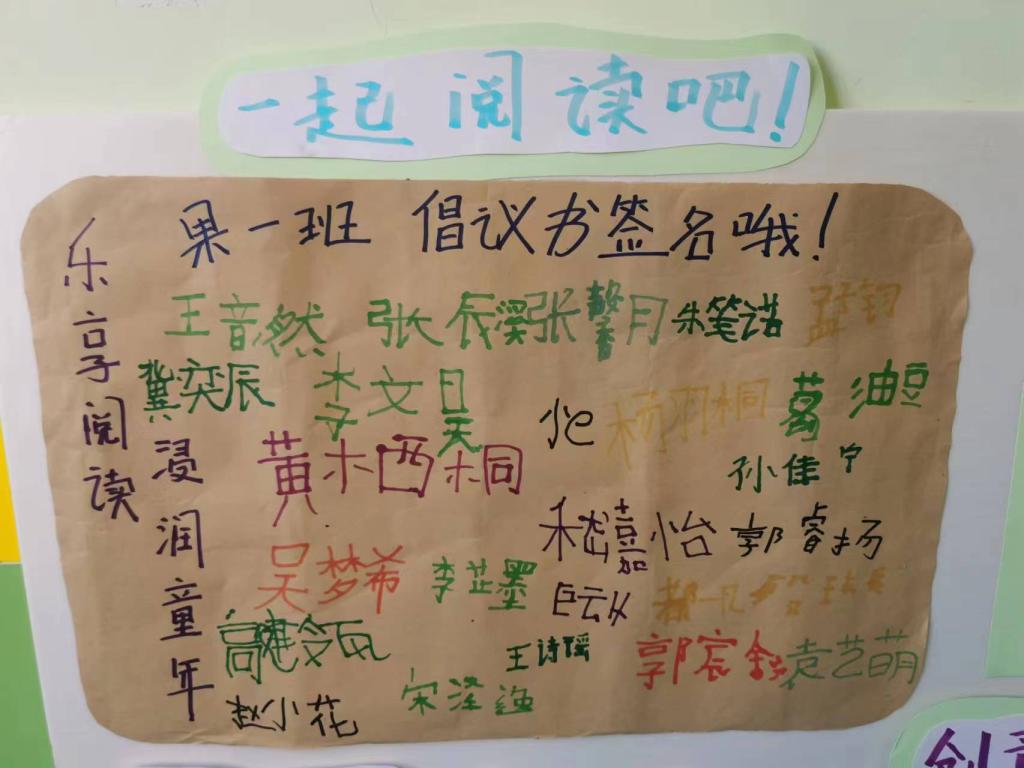 一起阅读吧!
果一班 倡议书签名哦!
乐享阅读
浸润童年
王音然 张辰溪 张馨月 朱笔诺 孟钥
冀奕辰 李文昊 杨羽桐 葛油豆
孙佳宁
黄栖桐
嵇嘉怡 郭睿扬
吴梦希 李芷墨
王诗瑶 郭宸 袁艺萌
赵小花 宋滢逸
创